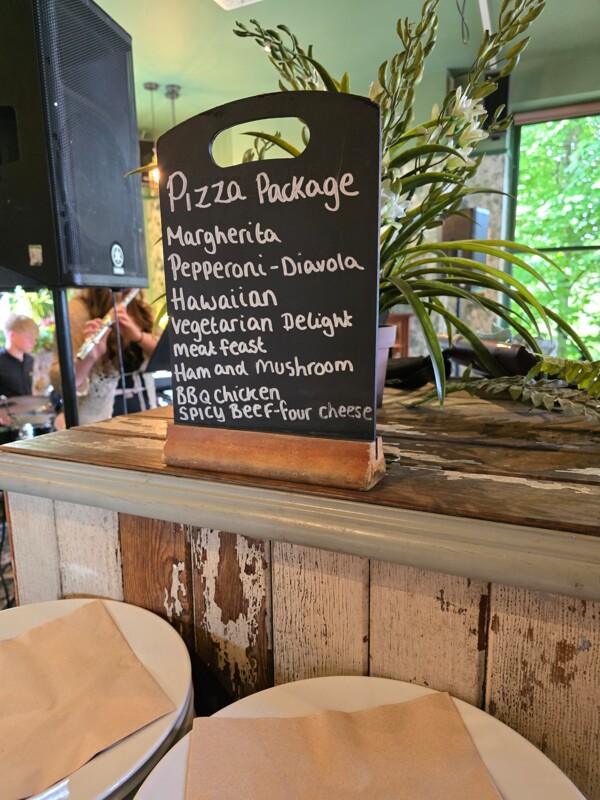 Pizza Package
Margherita
Pepperoni-Diavola
Hawaiian
Vegetarian Delight
meat feast
Ham and Mushroom
BBQ chicken
SPICY BEEF-four cheese